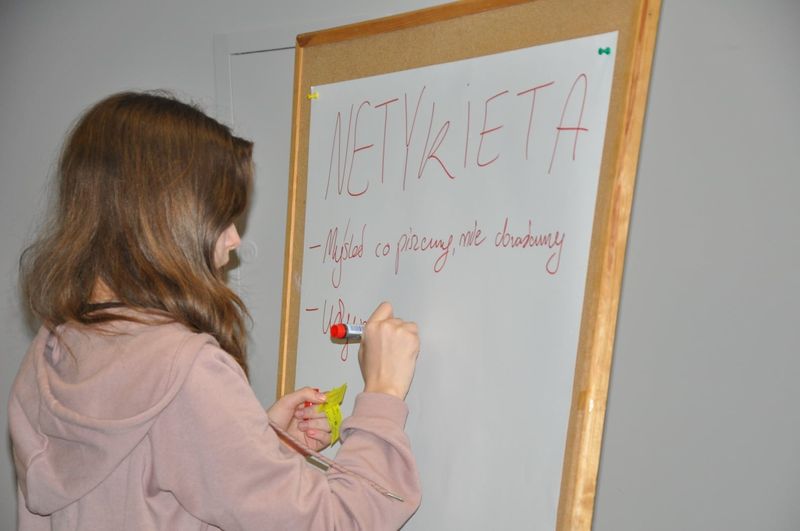 NETYKIETA
- Myśleć co piszemy, nie obrażamy
- Używ